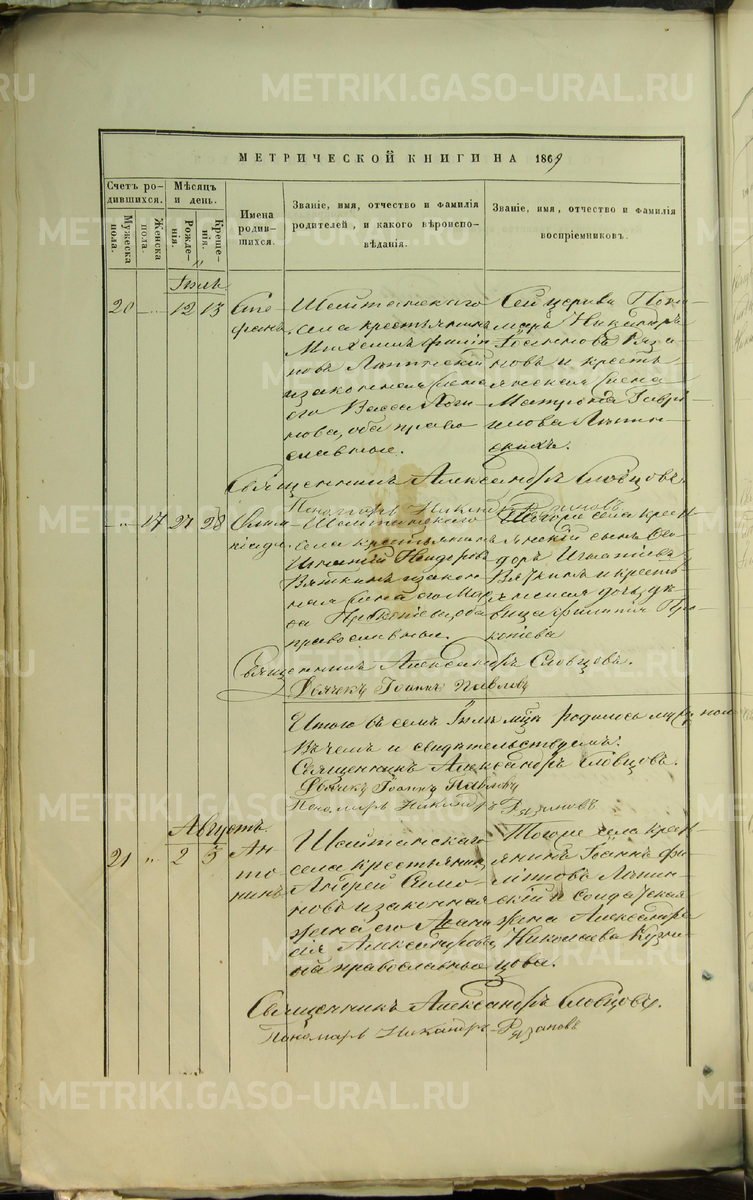 METRIKI.GASO-URAL.RU
МЕТРИЧЕСКОЙ КНИГИ НА 1869
Счетъ родившихся.
Мужеска пола.
Женска пола.
Мѣсяцъ и день.
Рожденія.
Крещенія.
Имена родившихся.
Званіе, имя, отчество и фамилія родителей, и какого вѣроисповѣданія.
Званіе, имя, отчество и фамилія воспріемниковъ.
Іюль
20 12 13
Стефанъ
Шайтанскаго
села крестьянинъ
Михаилъ Филип
повъ
и законная жена
его Васса Логи
нова, оба право
славные.
Сей церкви Поно
марь Никандръ
Іоанновъ Ряза
новъ и кресть
янская жена
Матрона Гаврі
илова
Священникъ Александръ Словцовъ.
Пономарь Никандръ Рязановъ
17 27 28
Олим
піада
Шайтанскаго
села крестьянинъ
Игнатій Ѳеодоровъ
Вяткинъ и закон
ная жена его Мар
ѳа Прокопіева, оба
православные.
Тогоже села крес
тьянскій сынъ Ѳео
доръ Игнатіевъ
Вяткинъ и кресть
янская дочь, дѣ
вица
копіева
Священникъ Александръ Словцовъ.
Дьячекъ Іоаннъ Павловъ
Итого въ семъ Іюлѣ мцѣ родилось
Въ чемъ и свидѣтельствуемъ:
Священникъ Александръ Словцовъ.
Дьячекъ Іоаннъ Павловъ
Пономарь Никандръ Рязановъ
Августъ
21 " 2 3
Ан
то
нинъ
Шайтанскаго
села крестьянинъ
Андрей Симо
новъ и законная
жена его
Александрова
православные
Тогоже села крес
тьянинъ Іоаннъ Фи
липповъ
и солдатская
жена Александра
Николаева Кузне
цова.
Священникъ Александръ Словцовъ.
Пономарь Никандръ Рязановъ